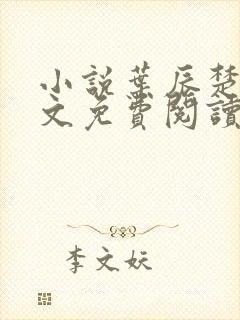 小説葉辰楚
文免費閱讀
李文妖